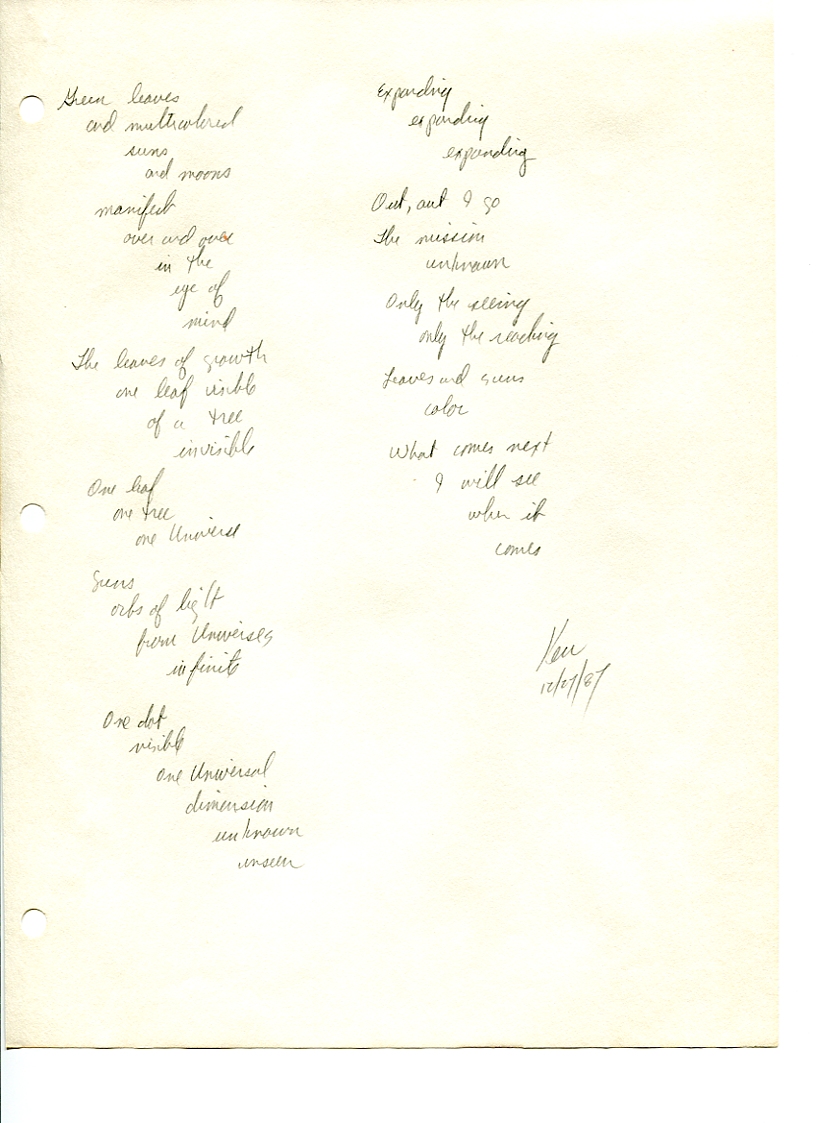 Green leaves
and multicolored
suns
and moons
manifest
over and over
in the
eye of
mind
The leaves of growth
one leaf visible
of a tree
invisible
One leaf
one tree
one Universe
Suns
orbs of light
from Universes
infinite
One dot
visible
one Universal
dimension
unknown
unseen
Expanding
expanding
expanding
Out, out I go
The mission
unknown
Only the seeing
only the reaching
Leaves and suns
color
What comes next
I will see
when it
comes
Ken
12/27/87